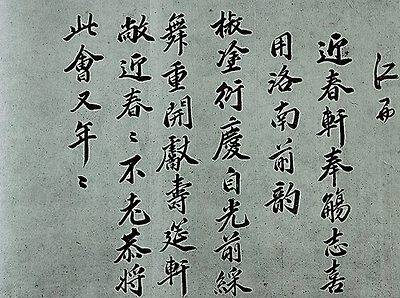 近春軒奉觴志喜
用洛南前韵
椒塗衍慶自光前綵
舞重開獻壽筵軒
敞近春〻不老恭將
此會又年〻